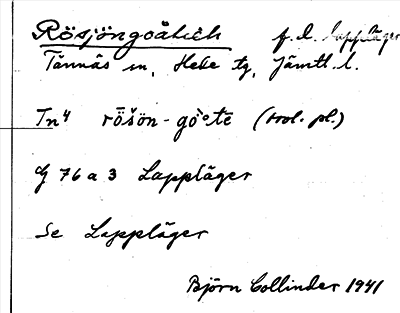 Rösjöngoåhtēh f. d. Lappläger
Tännäs sn, Hede tg, Jämtl. l.
Tn4 rȫšön-gò°tē (pl.)
G 76 a 3 Lappläger
Se Lappläger
Björn Collinder 1941